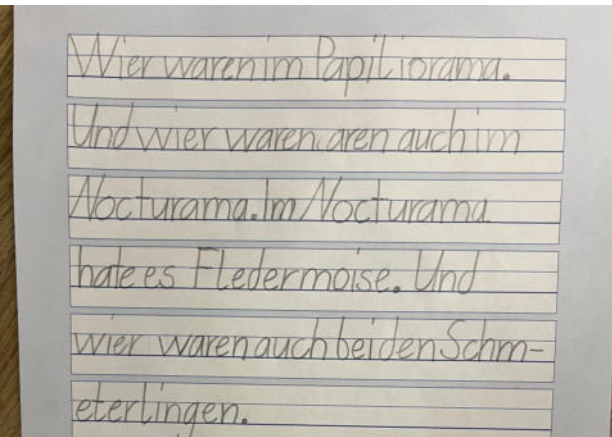 Wier waren im Papiliorama.
Und wier waren aren auch im
Nocturama. Im Nocturama
hate es Fledermoise. Und
wier waren auch bei den Schm-
eterlingen.